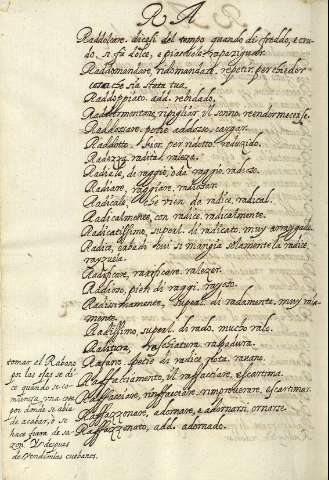 R A
Raddolcare. dicesi del tempo quando di freddo, e cru-
do si fà dolce, e piacevole. apaziguar.
Raddomandare, ridomandare, repetir, per chieder
cosa che sia stata tua.
Raddoppiato. add. reblado,
Raddormentare, ripigliar il sonno, reendormecerse.
Raddossare, porre addosso, cargar.
Raddotto. Sior. per ridotto, reduzido.
Radezza, radità. raleza.
Radiale, di raggio, ò dà raggio, radioso.
Radiare, raggiare, radiar.
Radicale, che vien da radice, radical.
Radicalmente, con radice, radicalmente.
Radicatissimo, superl. di radicato, muy arraygado.
Radice, si mangia solamente la radice
rayzuela.
Radificare, rarificare, ralezer.
Radioso, pien di raggi, rayoso.
Radissimamente, superl. di radamente, muy rala-
mente.
Radissimo, superl. di rado, mucho ralo.
Raditura, raschiatura, rapadura.
Rafano. spetie di radice nota, ravano.
Raffacciamento, il raffacciare,
Raffacciare, rinfacciare, rimproverare,
Raffazzonare, adornare, e adornarsi, ornarse.
Raffazzonato, add. adornado.
tomar el Rabano
por las ojas se di-
ze quando se co-
miença una cosa
por donde se avia
de acabar, ò se
hace fuera de sa-
zon. Y despues
de vendimias cuebanos.